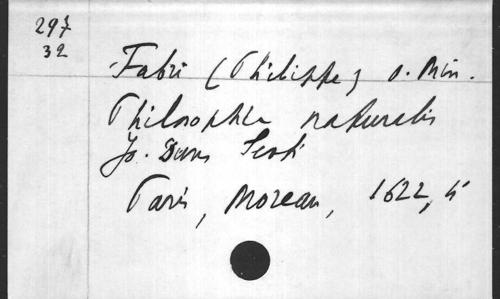 297
32
Fabri (Philippe) o. Min.
Philosophia naturalis
Jo. Duns Scoti
Paris, Moreau, 1622, 4°